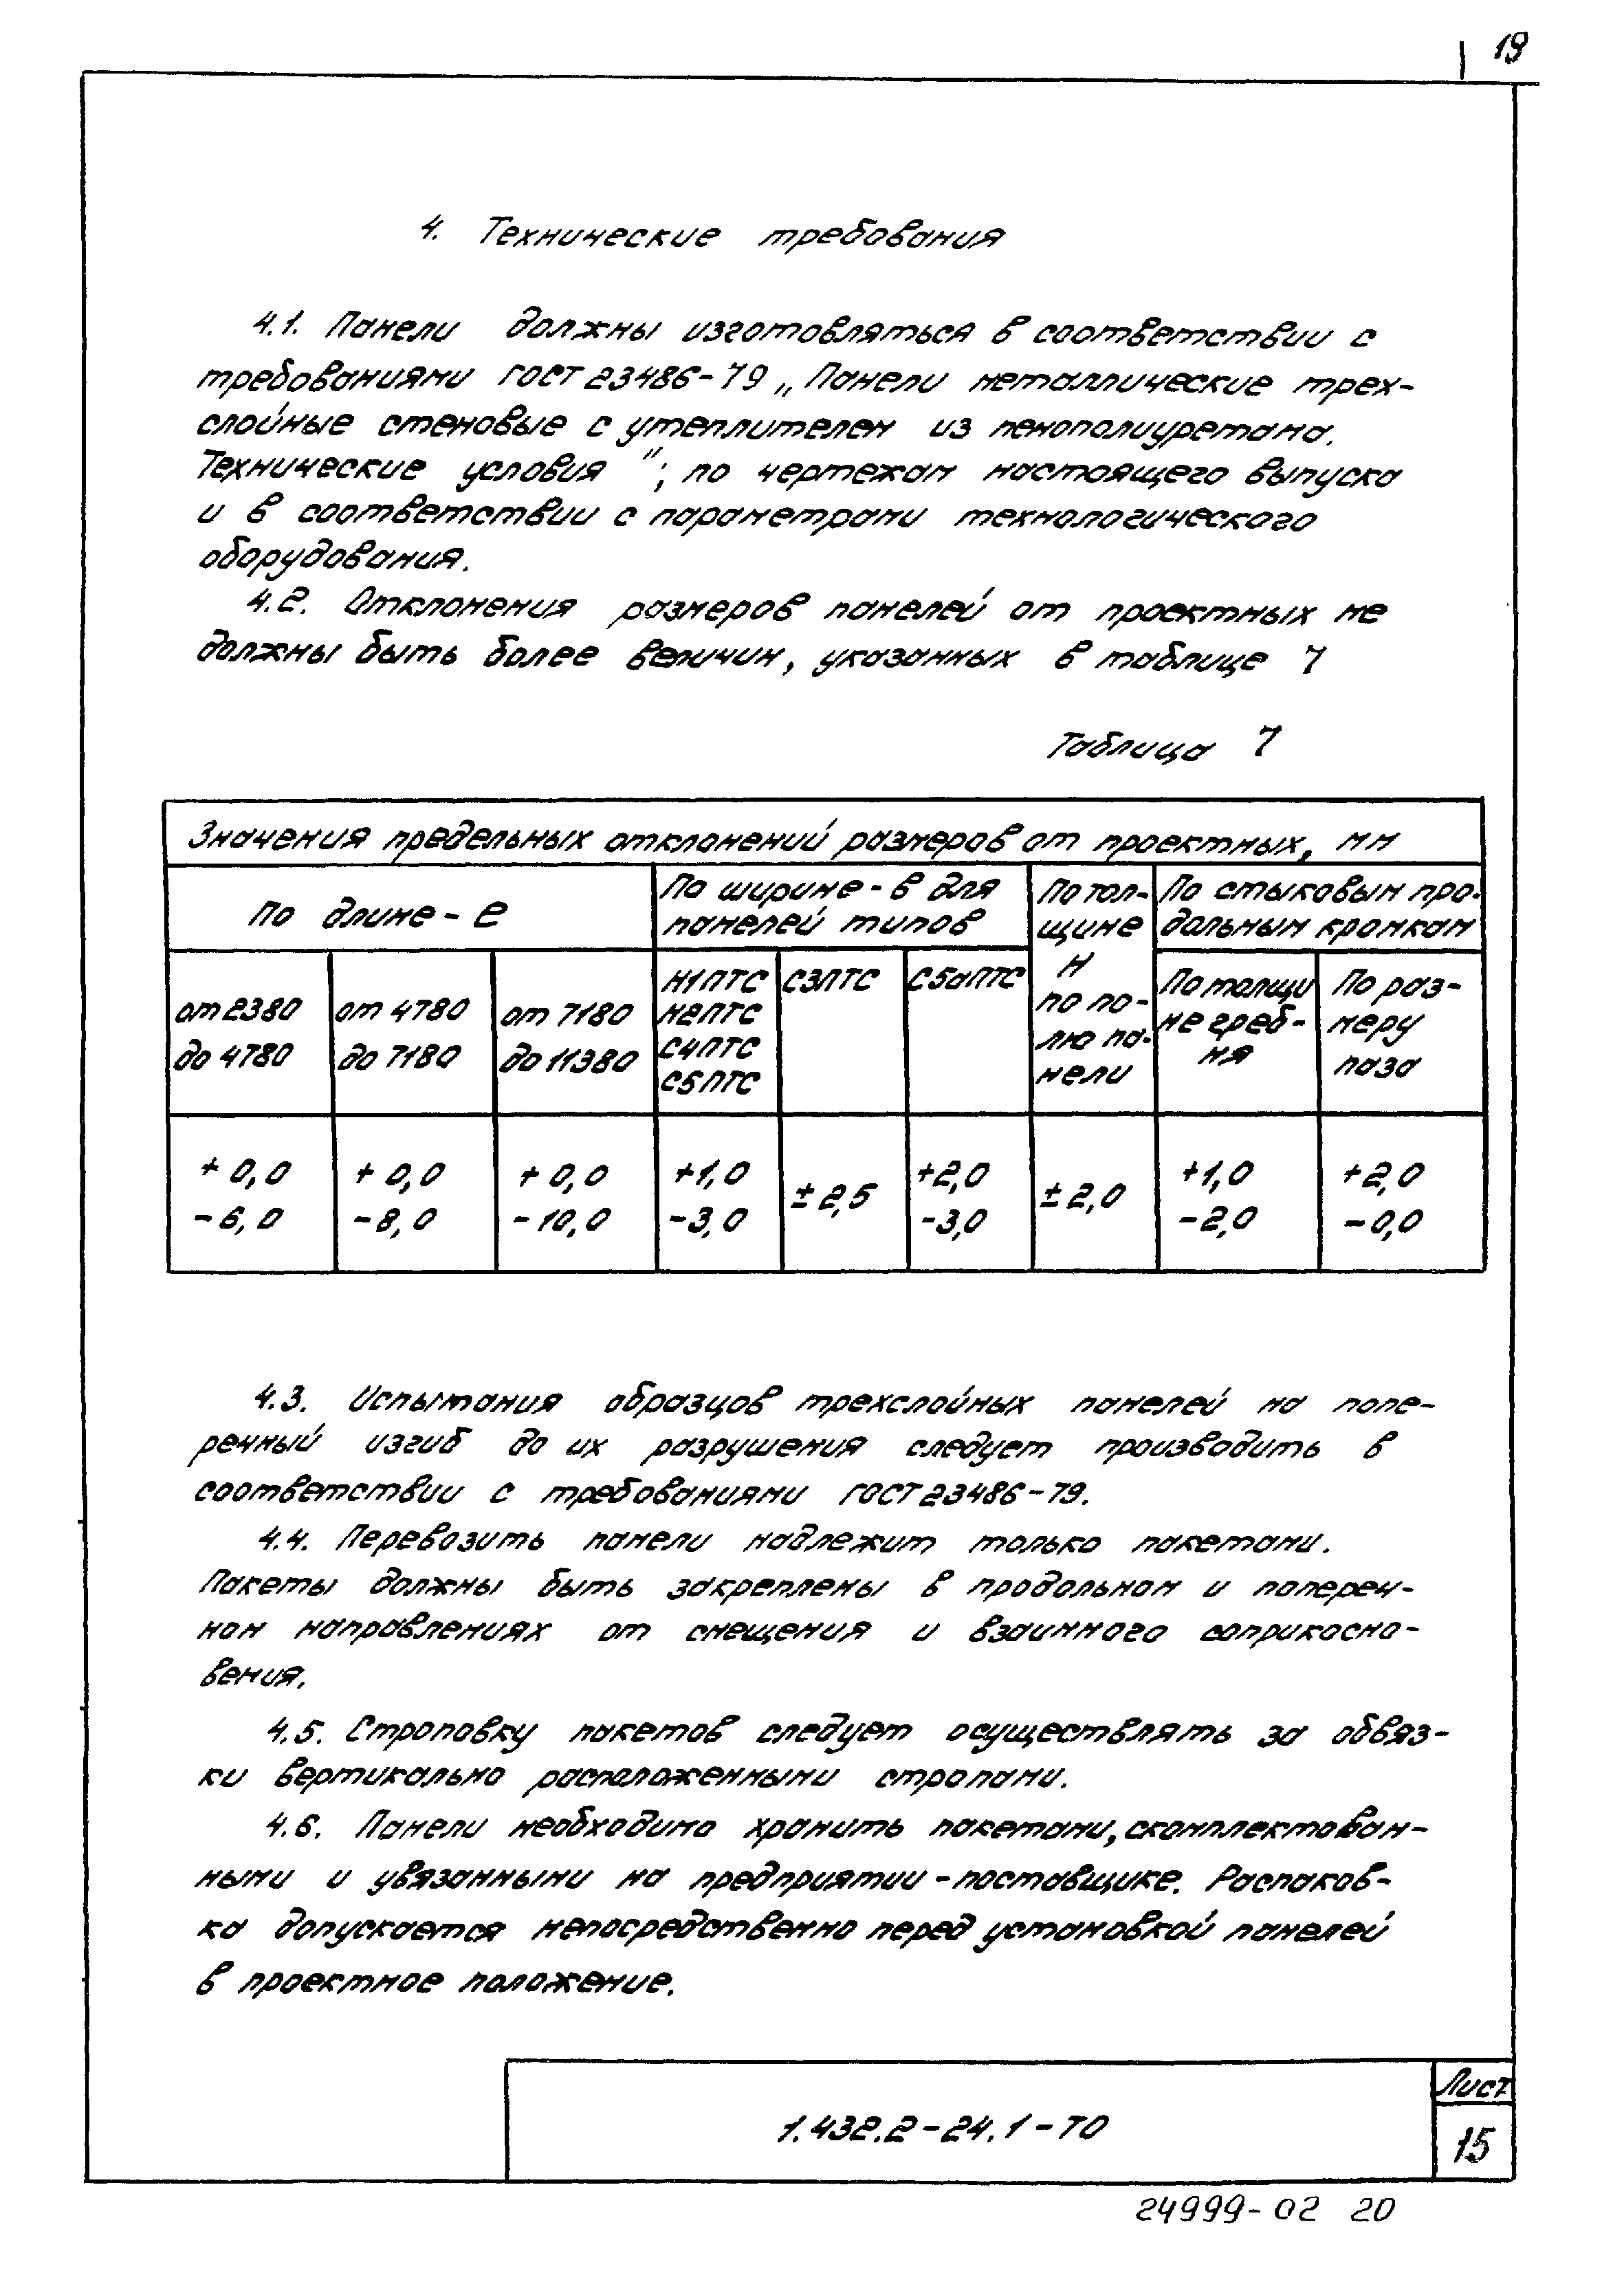 19
4. Технические требования
4.1. Панели должны изготовляться в соответствии с
требованиями ГОСТ 23486-79 „Панели металлические трех-
слойные стеновые с утеплителем из пенополиуретана.
Технические условия"; по чертежам настоящего выпуска
и в соответствии с параметрами технологического
оборудования.
4.2. Отклонения размеров панелей от проектных не
должны быть более величин, указанных в таблице 7
Таблица 7
Значения предельных отклонений размеров от проектных, мм
По длине - ℓ
По ширине - в для
панелей типов
По тол-
щине
Н
по по-
лю па-
нели
По стыковым про-
дольным кромкам
от 2380
до 4780
от 4780
до 7180
от 7180
до 11380
Н1ПТС
Н2ПТС
С4ПТС
С5ПТС
С3ПТС
С5аПТС
По толщи
не греб-
ня
По раз-
меру
паза
+ 0,0
- 6,0
+ 0,0
- 8,0
+ 0,0
- 10,0
+1,0
-3,0
± 2,5
+2,0
-3,0
± 2,0
+1,0
-2,0
+2,0
-0,0
4.3. Испытания образцов трехслойных панелей на попе-
речный изгиб до их разрушения следует производить в
соответствии с требованиями ГОСТ 23486-79.
4.4. Перевозить панели надлежит только пакетами.
Пакеты должны быть закреплены в продольном и попереч-
ном направлениях от смещения и взаимного соприкосно-
вения.
4.5. Строповку пакетов следует осуществлять за обвяз-
ки вертикально расположенными стропами.
4.6. Панели необходимо хранить пакетами, скомплектован-
ными и увязанными на предприятии-поставщике. Распаков-
ка допускается непосредственно перед установкой панелей
в проектное положение.
1.432.2-24.1-ТО
Лист
15
24999-02 20